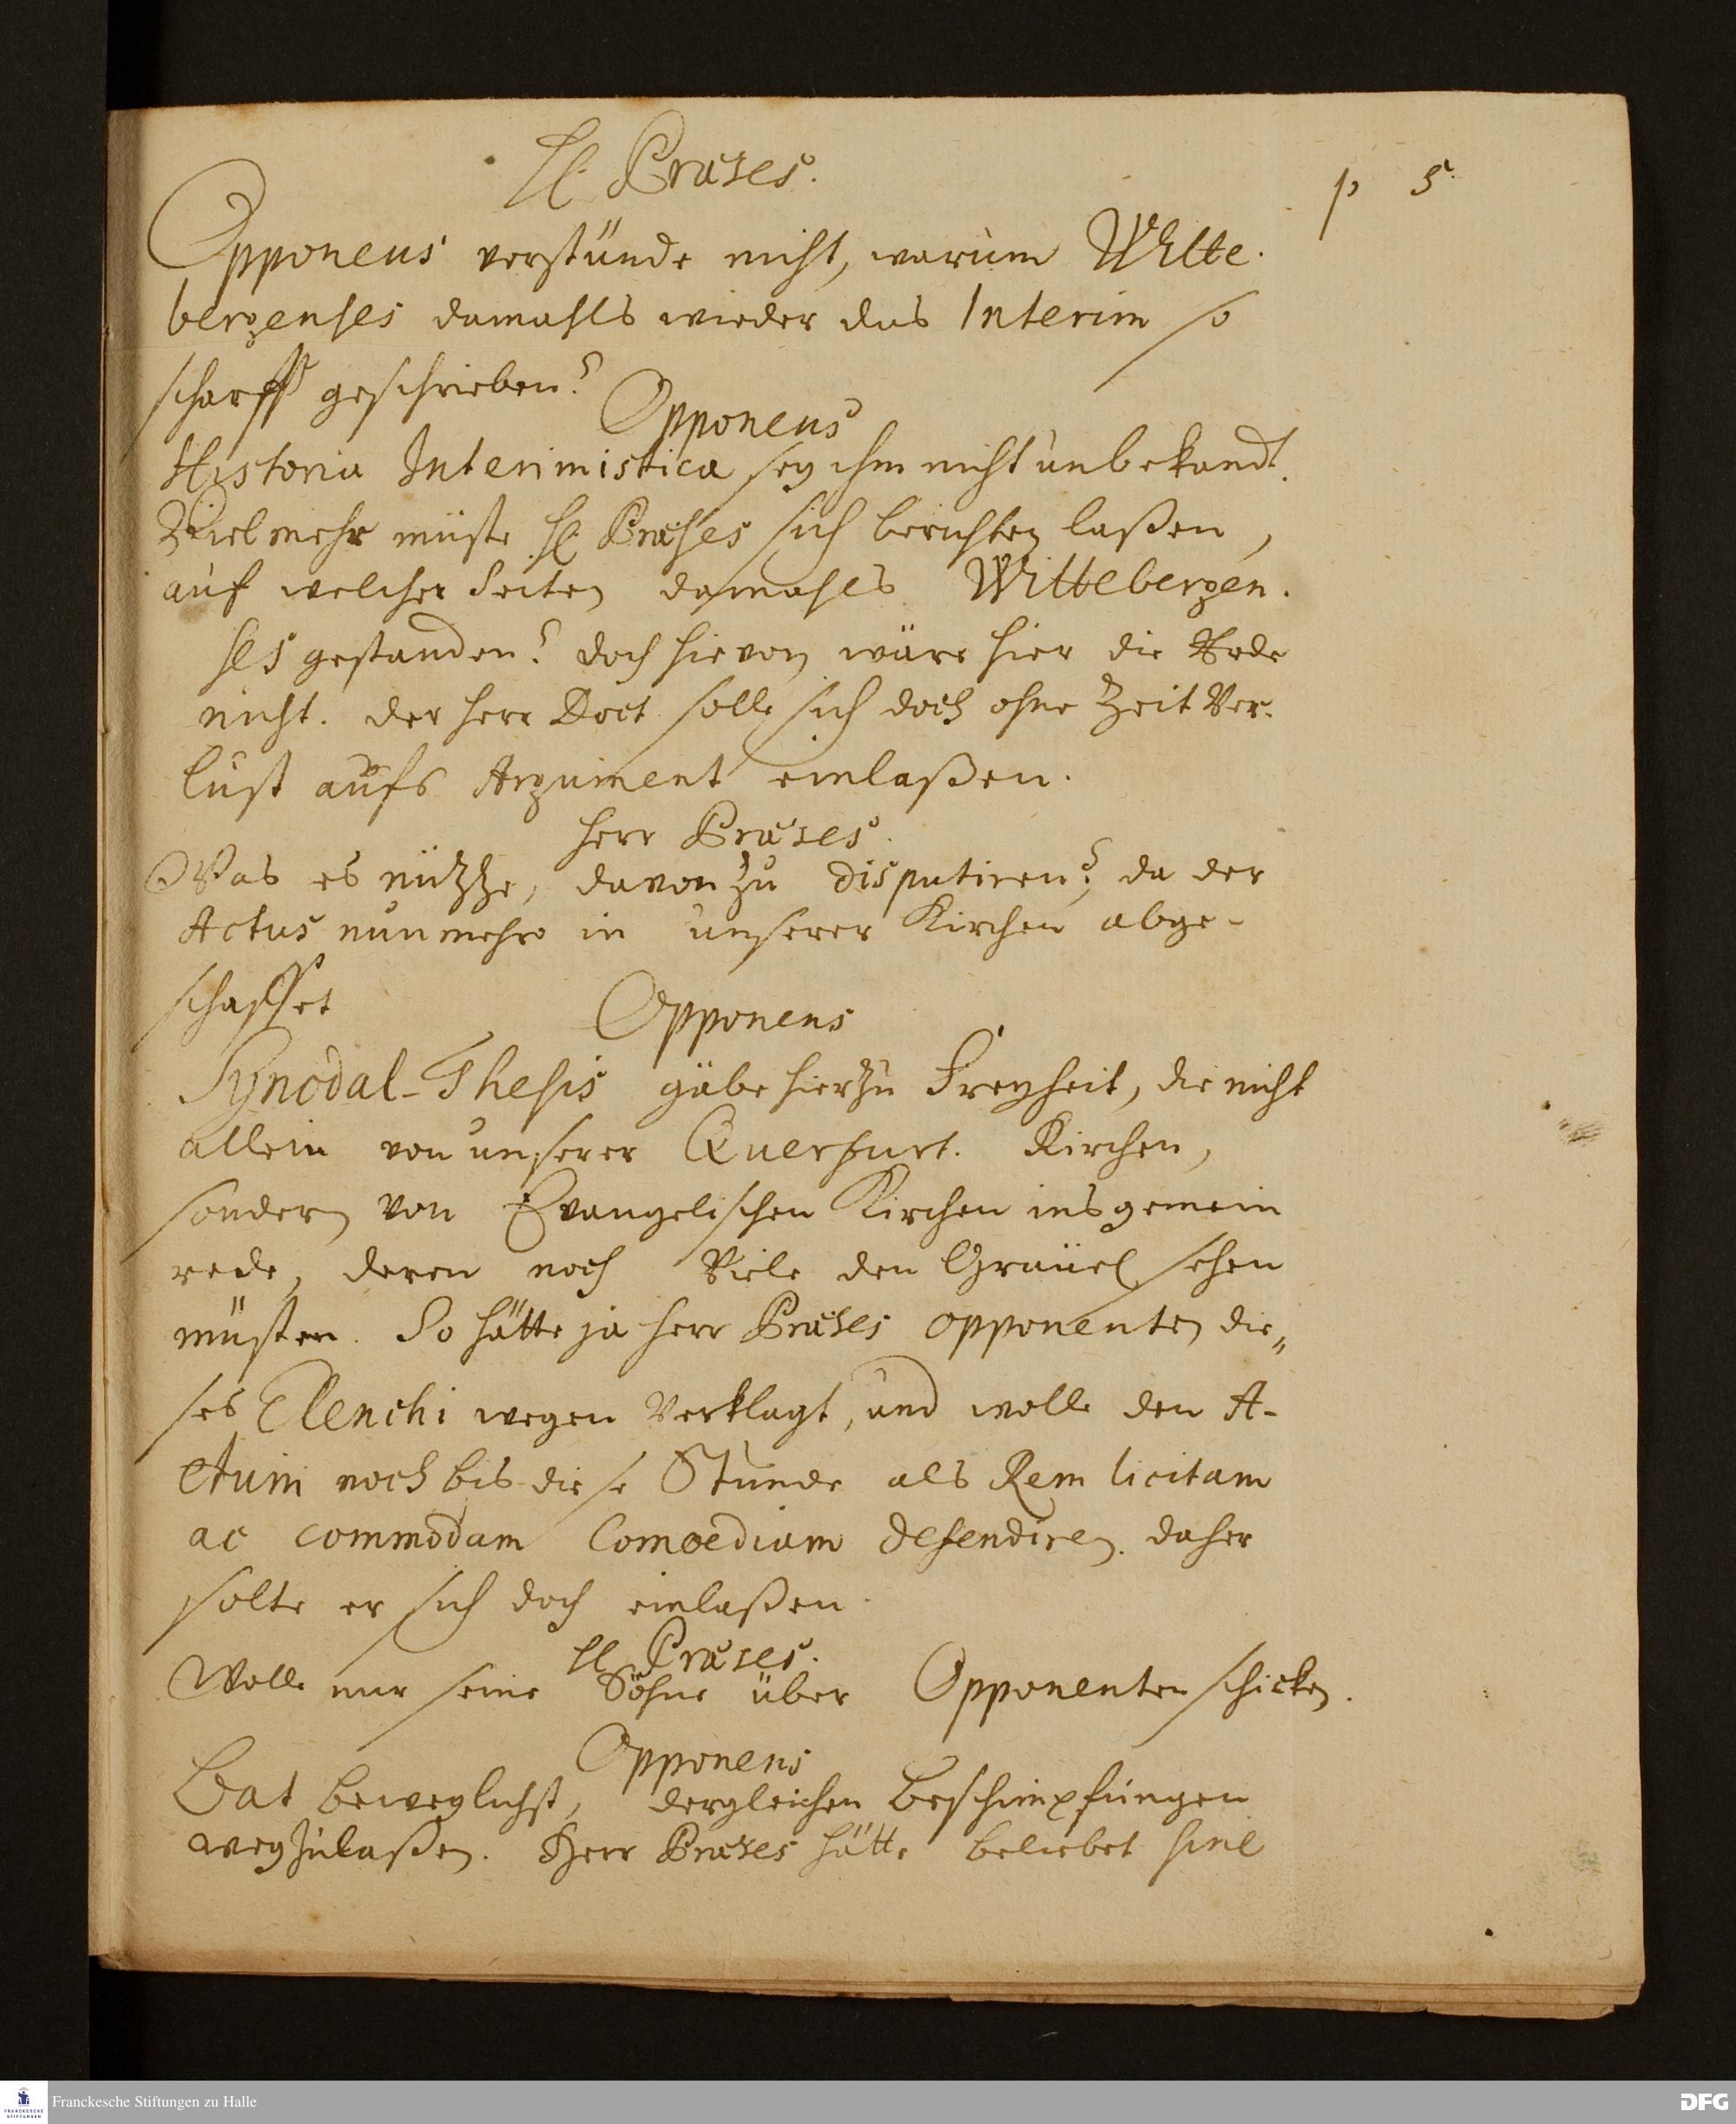 H. Præses.
p 5.
Opponens verstünde nicht, warum Witte-
bergenses damahls wieder das Interim so
scharff geschrieben?
Opponens
Historia Interimistica sey ihm nicht unbekandt.
Vielmehr müste H. Præses sich berichten laßen,
auf welcher Seiten damahls Wittebergen-
ses gestanden? doch hievon wäre hier die Rede
nicht. der Herr Doct. solle sich doch ohne Zeit Ver-
lust aufs Argument einlaßen.
Herr Præses.
Was es nützze, davon zu disputiren? da der
Actus nunmehro in unserer Kirchen abge-
schaffet
Opponens
Synodal-Thesis gäbe hierzu Freyheit, die nicht
allein von unserer Querfurt. Kirchen,
sondern von Evangelischen Kirchen insgemein
rede, deren noch Viele den Gräuel sehen
müsten. So hätte ja Herr Præses Opponenten die-
ses Elenchi wegen Verklagt, und wolle den A-
ctum noch bis diese Stunde als Rem licitam
ac commodam Comoediam defendiren. daher
solte er sich doch einlaßen.
H. Præses.
Wolle nur seine Söhne über Opponenten schicken.
Opponens
Bat beweglichst, dergleichen Beschimpfungen
wegzulaßen. Herr Præses hätte beliebet sine
Franckesche Stiftungen zu Halle
FRANCKESCHE
STIFTUNGEN
DFG